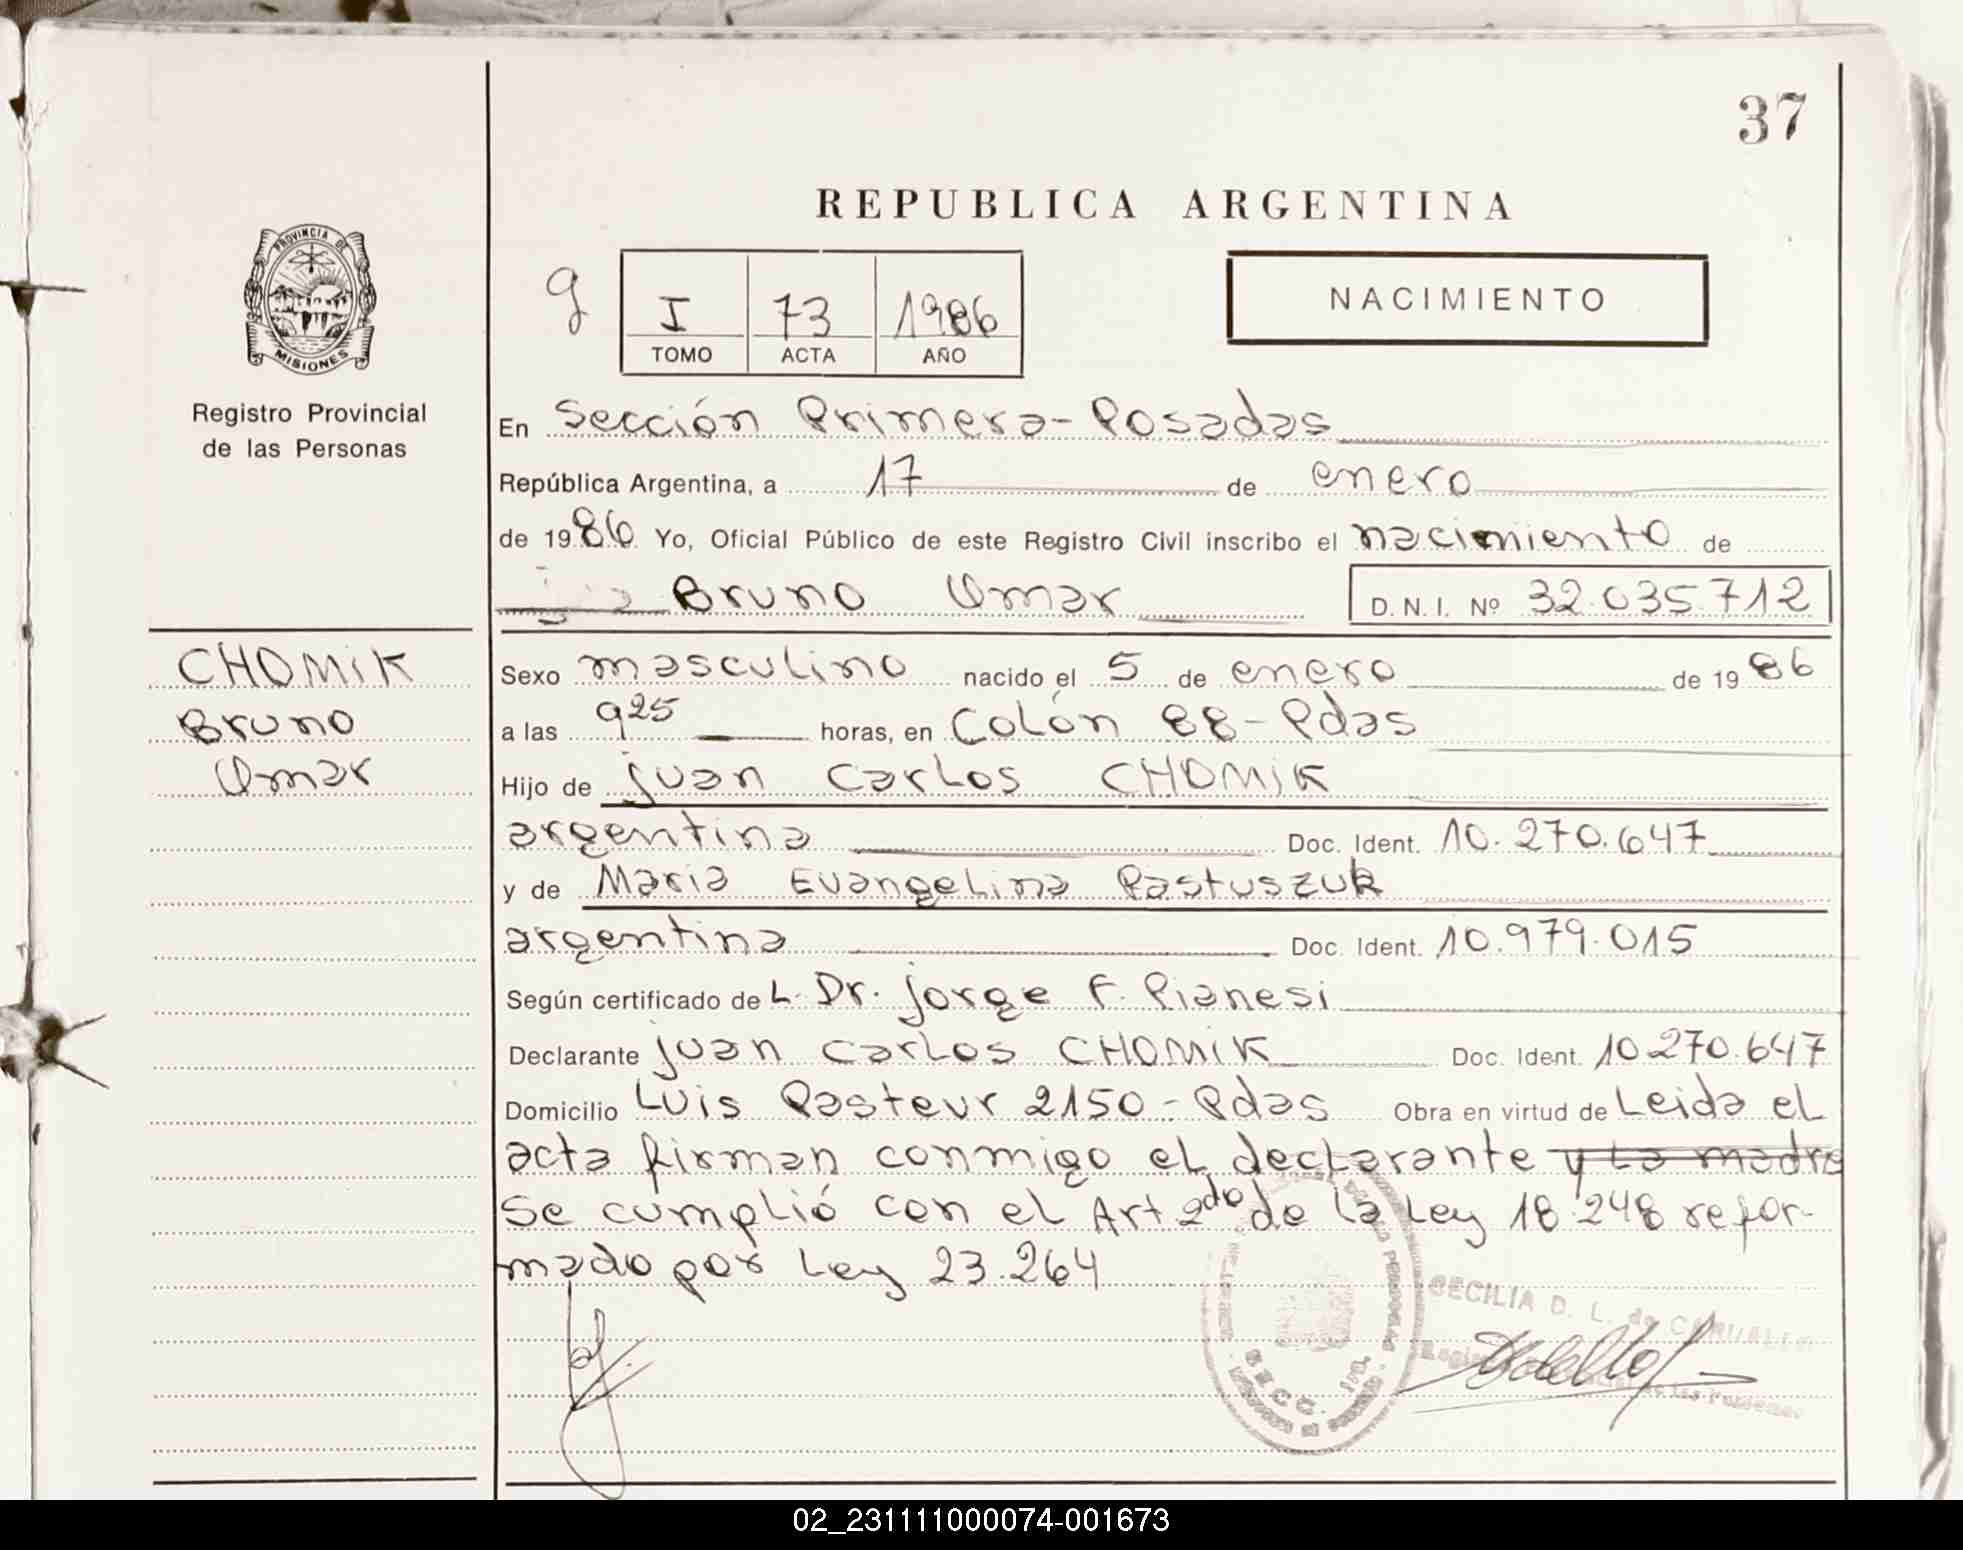 37
REPUBLICA ARGENTINA
PROVINCIA DE
MISIONES
Registro Provincial
de las Personas
g
I 73 1986
TOMO ACTA AÑO
NACIMIENTO
En Sección Primera-Posadas
República Argentina, a 17 de enero
de 1986 Yo, Oficial Público de este Registro Civil inscribo el nacimiento de
Bruno Omar D. N. I. Nº 32.035.712
CHOMIK
Bruno
Omar
Sexo masculino nacido el 5 de enero de 1986
a las 925 horas, en Colón 88-Pdas
Hijo de juan Carlos CHOMIK
argentina Doc. Ident. 10.270.647
y de Maria Evangelina Pastuszuk
argentina Doc. Ident. 10.979.015
Según certificado de L. Dr. jorge F. Pianesi
Declarante juan Carlos CHOMIK Doc. Ident. 10.270.647
Domicilio Luis Pasteur 2150-Pdas Obra en virtud de Leida el
acta firman conmigo el declarante y la madre
se cumplió con el Art 2do de la Ley 18.248 refor-
mado por Ley 23.264
SECC. 1ra.
CECILIA D. L. de
de las Personas
02_231111000074-001673